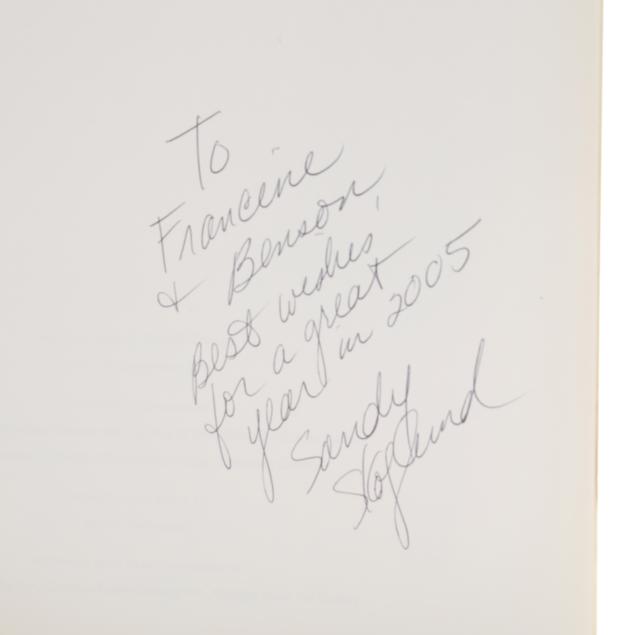 To
Francine
& Benson,
Best wishes
for a great
year in 2005
Sandy
Skoglund